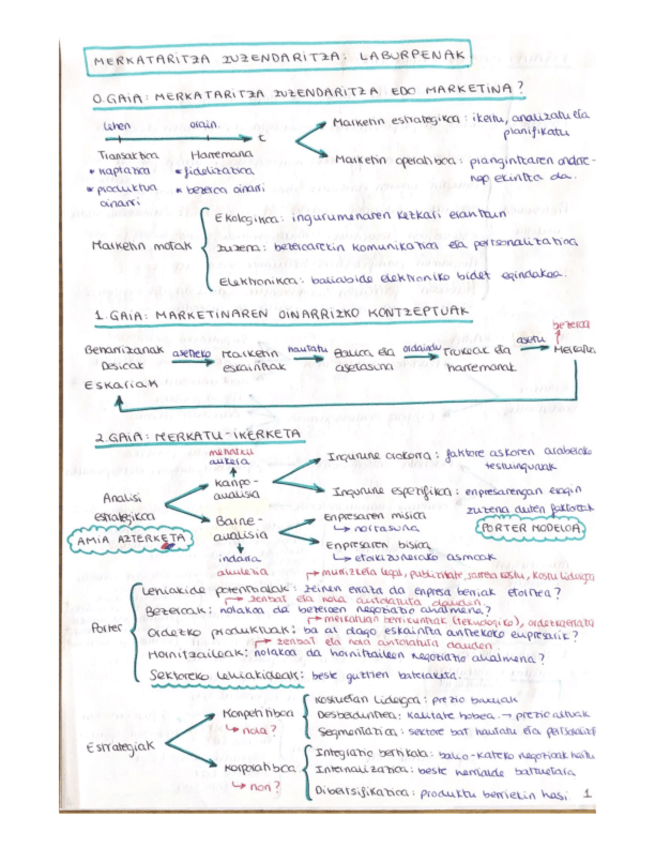 MERKATARITZA ZUZENDARITZA: LABURPENAK
0.GAIA: MERKATARITZA ZUZENDARITZA EDO MARKETINA?
lehen orain t
Transakzioa Harremana
* kaptazioa * fidelizatzea
* produktua oinarri * bezeroa oinarri
Marketin estrategikoa: ikertu, analizatu eta planifikatu
Marketin operatiboa: plangintzaren ondorengo ekintza da.
Marketin motak
Ekologikoa: ingurumenaren kezkati erantzun
Zuzena: bezeroarekin komunikatzea eta pertsonalizatzea
Elektronikoa: baliabide elektroniko bidez egindakoa.
1.GAIA: MARKETINAREN OINARRIZKO KONTZEPTUAK
bezeroa
Beharrizanak asetzeko Marketin hautatu Balioa eta ordaindu Trukeak eta osatu Merkatua
Desioak eskaintzak asetasuna harremanak
Eskariak
2.GAIA: MERKATU-IKERKETA
mehatxu
aukera
Kanpo-analisia
Ingurune orokorra: faktore askoren araberako testuinguruak
Ingurune espezifikoa: enpresarengan eragin zuzena duten faktoreak
Analisi estrategikoa
AMIA AZTERKETA
Barne-analisia
Enpresaren misioa
↳ nortasuna
PORTER MODELOA
Enpresaren bisioa
↳ etorkizunerako asmoak
indarra
ahulezia
↱ murrizketa legal, publizitate, sarrera kostu, kostu lidergoa
Porter
Lehiakide potentzialak: zeinen erraza da enpresa berriak etortzea?
↱ zenbat eta nola antolatuta dauden
Bezeroak: nolakoa da bezeroen negoziazio ahalmena?
↱ merkatuan berrikuntzak (teknologiko), ordezkagarria
Ordezko produktuak: ba al dago eskaintza antzekoko enpresarik?
↱ zenbat eta nola antolatuta dauden.
Hornitzaileak: nolakoa da hornitzaileen negoziazio ahalmena?
Sektoreko lehiakideak: beste guztien batezketa.
Estrategiak
Konpetitiboa
↳ nola?
Kostuetan lidergoa: prezio baxuak
Desberdintzea: kalitate hobea. → prezio altuak
Segmentazioa: sektore bat hautatu eta
Korporatiboa
↳ non?
Integrazio bertikala: balio-kateko negozioak
Internalizazioa: beste herrialde batzuetara
Dibertsifikazioa: produktu berriekin hasi
1